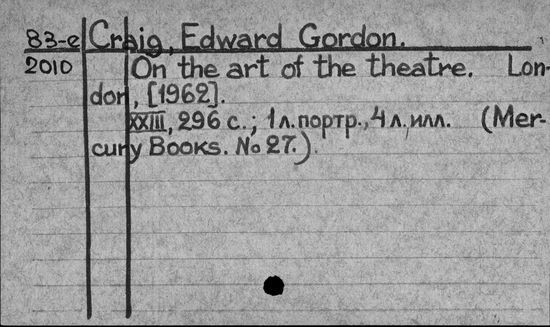 83-е Craig, Edward Gordon.
2010 On the art of the theatre. Lon-
don, [1962].
XXIII, 296 с.; 1 л. портр., 4 л. илл. (Mer-
cury Books. No 27.).